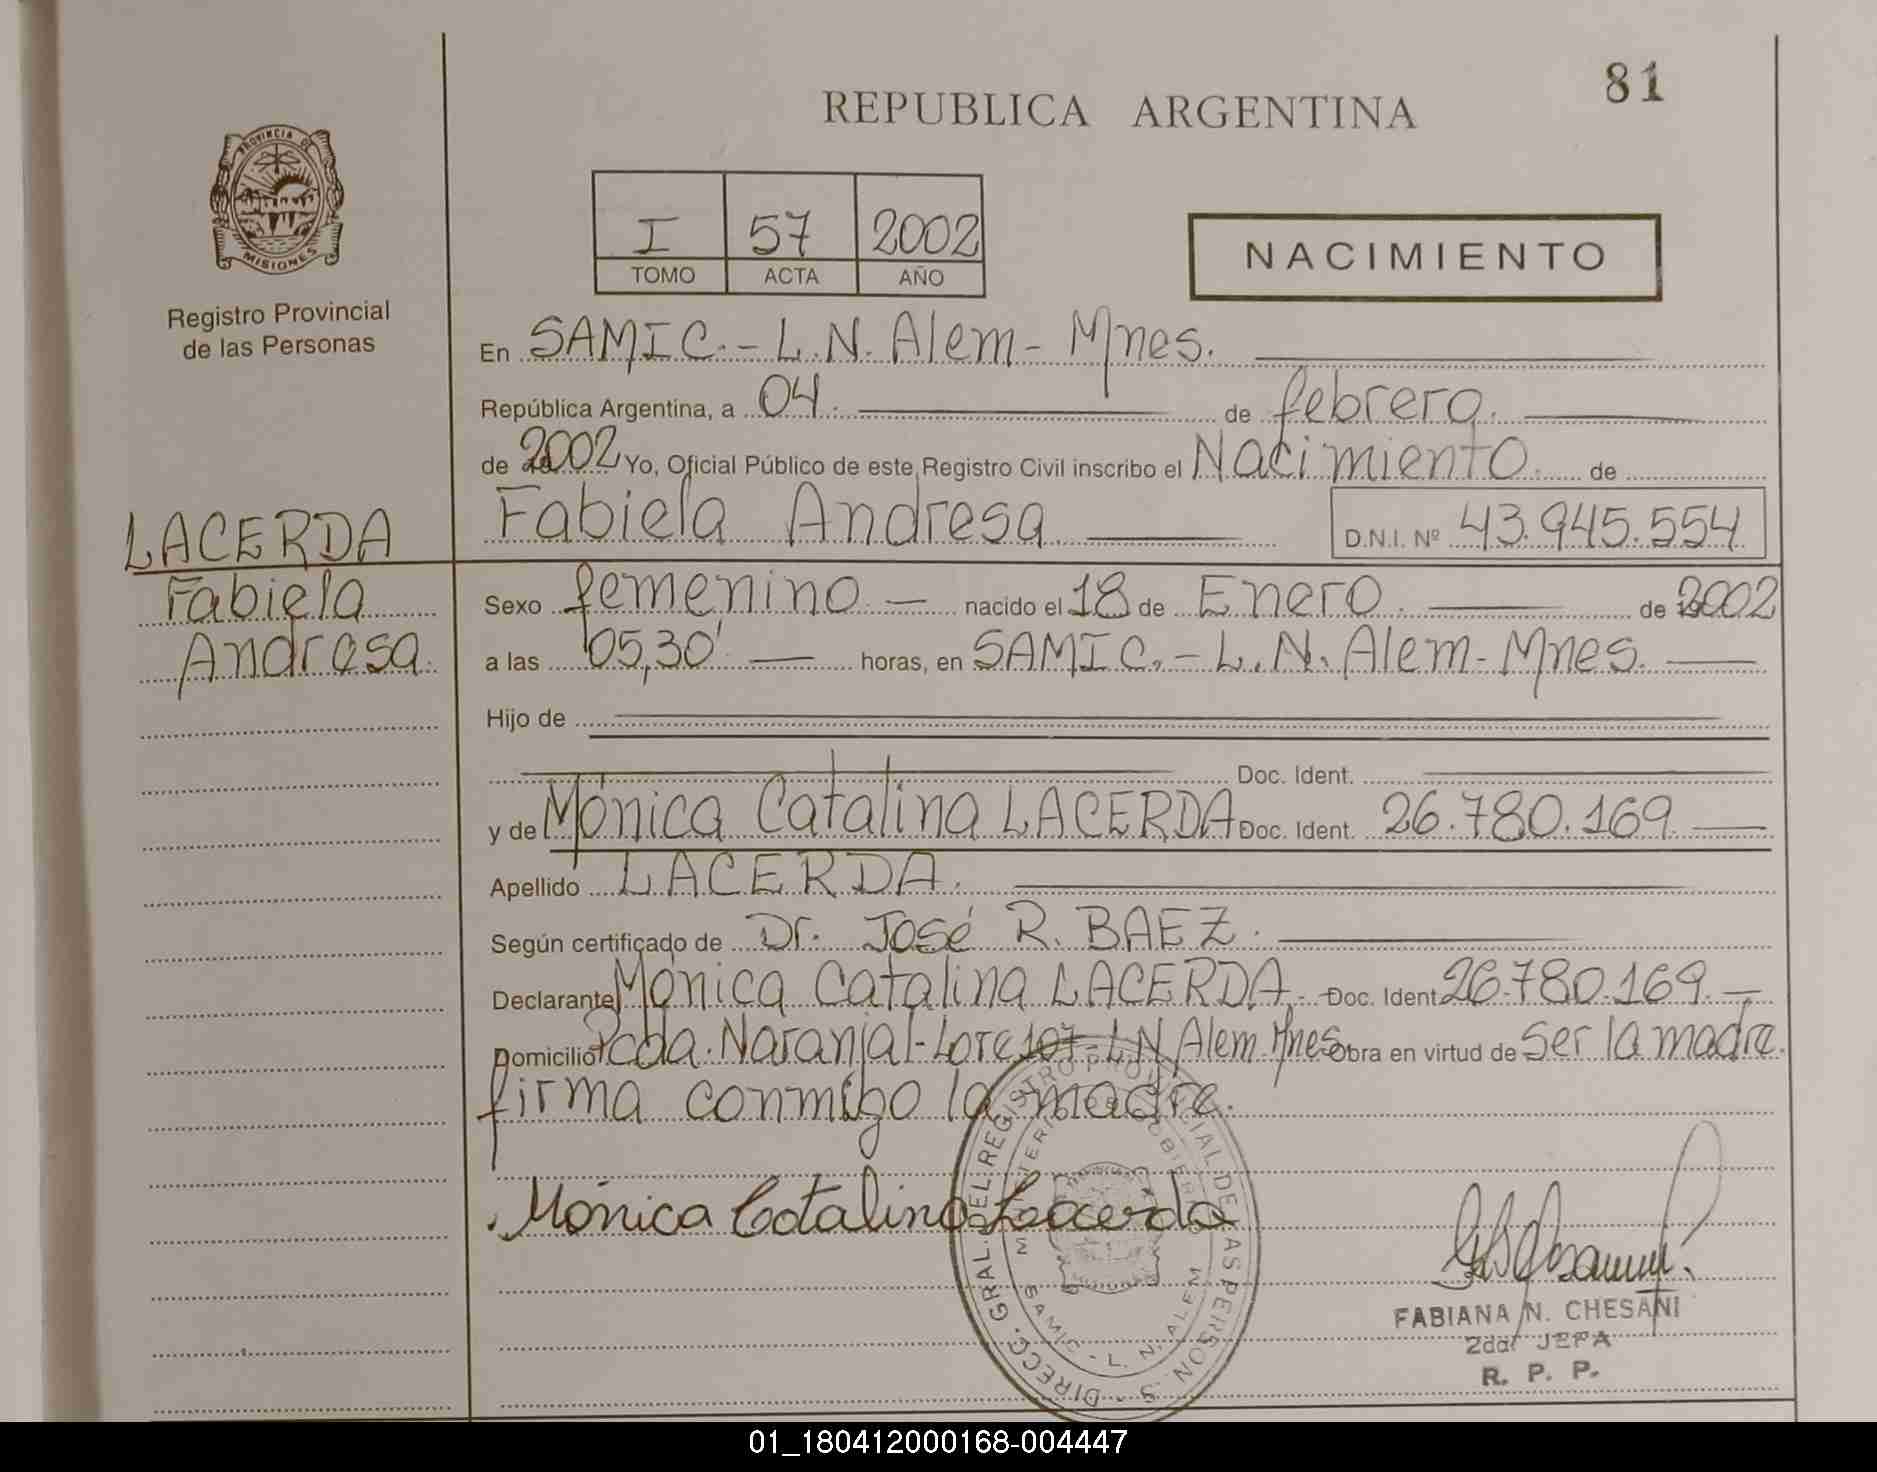 81
REPUBLICA ARGENTINA
PROVINCIA DE
MISIONES
Registro Provincial
de las Personas
I 57 2002
TOMO ACTA AÑO
NACIMIENTO
En SAMIC.- L.N. Alem - Mnes.
República Argentina, a 04. de febrero.
de 2002 Yo, Oficial Público de este Registro Civil inscribo el Nacimiento. de
Fabiela Andresa
D.N.I. Nº 43.945.554
LACERDA
Fabiela
Andresa.
Sexo femenino - nacido el 18 de Enero. de 2002
a las 05,30' horas, en SAMIC.- L.N. Alem - Mnes.
Hijo de
Doc. Ident.
y de Mónica Catalina LACERDA Doc. Ident. 26.780.169
Apellido LACERDA.
Según certificado de Dr. José R. BAEZ.
Declarante Mónica Catalina LACERDA.- Doc. Ident 26.780.169.-
Domicilio Pcda. Naranjal - Lote 107 - LN Alem Mnes Obra en virtud de Ser la madre.
firma conmigo la madre.
Mónica Catalina Lacerda
DIRECC. GRAL. DEL REGISTRO PROVINCIAL DE LAS PERSONAS
SAMIC - L. N. ALEM
FABIANA N. CHESANI
2da. JEFA
R. P. P.
01_180412000168-004447